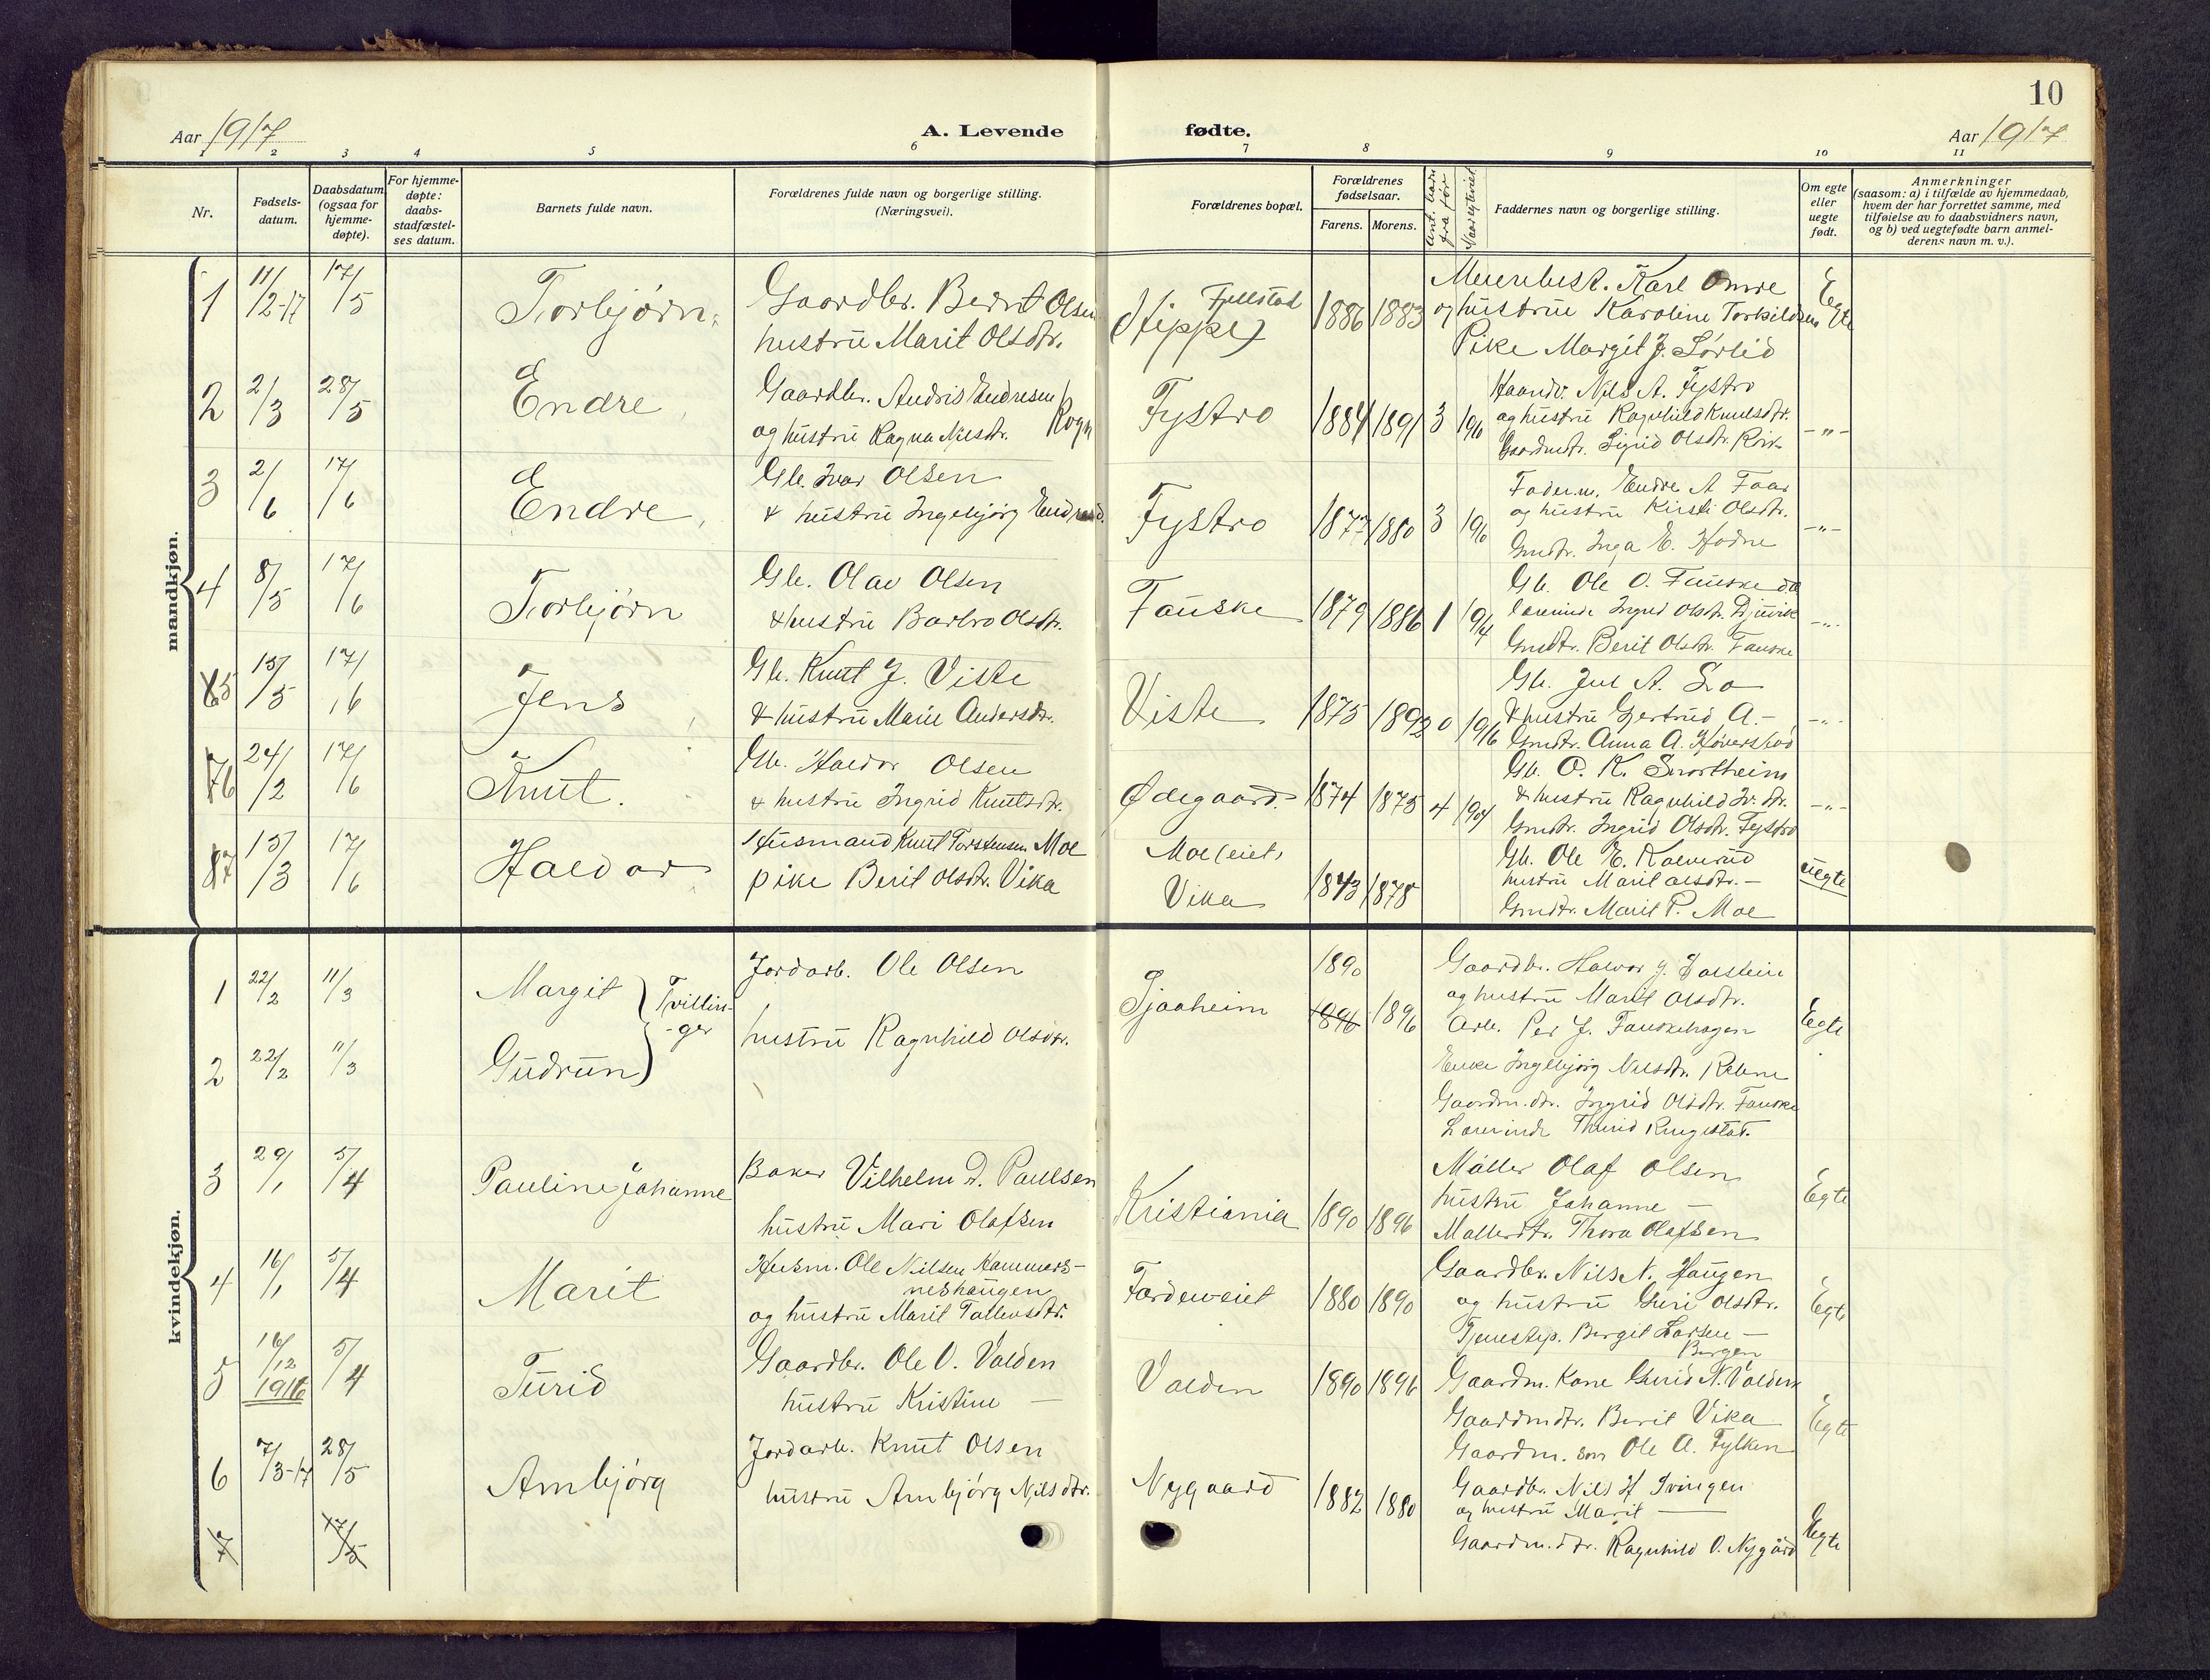 10
Aar 1917
A. Levende fødte.
Aar 1917
1 2 3 4 5 6 7 8 9 10 11
Nr.
Fødsels-datum.
Daabsdatum (ogsaa for hjemme-døpte).
For hjemme-døpte: daabs-stadfæstel-ses datum.
Barnets fulde navn.
Forældrenes fulde navn og borgerlige stilling. (Næringsvei).
Forældrenes bopæl.
Forældrenes fødselsaar.
Farens. Morens.
Faddernes navn og borgerlige stilling.
Om egte eller uegte født.
Anmerkninger (saasom: a) i tilfælde av hjemmedaab, hvem der har forrettet samme, med tilføielse av to daabsvidners navn, og b) ved uegtefødte barn anmel-derens navn m. v.).
mandkjøn.
1 11/2-17 17/5 Torbjørn Gaardbr. Bernt Olsen
hustru Marit Olsdtr.
Fjellstad
1886 1883
Karl Omre
og hustrue Karoline Torkildsen
Pike Margit J. Sørlid
Egte
2 2/3 28/5 Endre Gaardbr. Andris Endresen
og hustru Ragna Nilsdtr. Rogn
Fystro 1884 1891 3
Haandv. Nils A. Fystro
og hustru Ragnhild Knutsdtr.
Gaardmdtr. Sigrid Olsdtr.
-"-
3 2/6 17/6 Endre Gb. Ivar Olsen
& hustru Ingebjørg
Fystro 1877 1880 3
Endre A. Faar
og hustru Kirsti Olsdtr.
Gmdtr. Inga E. Hodne
-"-
4 8/5 17/6 Torbjørn Gb. Olav Olsen
& hustru Barbro Olsdtr.
Fauske 1879 1886 1 1914
Gb. Ole O. Fauske
Lærerinde Ingrid Olsdtr.
Gmdtr. Berit Olsdtr. Fauske
-"-
5 15/5 17/6 Jens Gb. Knut J. Viste
& hustru Marie Andersdtr.
Viste 1875 1892 0 1916
Gb. Jul A. Lo
& hustru Gjertrud A. -
Gmdtr. Anna A.
-"-
6 24/2 17/6 Knut. Gb. Haldor Olsen
& hustru Ingrid Knutsdtr.
Ødegaard. 1874 1875 4 1904
Gb. O. K. Snortheim
& hustru Ragnhild
Gmdtr. Ingrid Olsdtr. Fystro
-"-
7 15/3 17/6 Haldor Husmand Knut Torstensen Moe
pike Berit Olsdtr. Vika
Moe(eiet)
Vika 1843 1878
Gb. Ole E.
hustru Marit Olsdtr. -
Gmdtr. Marit P. Moe
uegte
kvindekjøn.
1 22/2 11/3 Margit
2 22/2 11/3 Gudrun
Tvillin-
-ger
Jordarb. Ole Olsen
hustru Ragnhild Olsdtr.
Tjaaheim 1890 1896 1896
Gaardbr. Halvor J.
og hustru Marit Olsdtr.
Arb. Per J. Fauskehagen
Enke Ingebjørg Nilsdtr.
Gaardm.dtr. Ingrid Olsdtr. Fauske
Lærerinde Thurid Ringestad.
Egte
3 29/1 5/4 Pauline Johanne Baker Vilhelm D. Paulsen
hustru Mari Olafsen
Kristiania 1890 1896
Møller Olaf Olsen
hustru Johanne -
Møllerdtr. Thora Olafsen
Egte
4 16/1 5/4 Marit Husm. Ole Nilsen Hammers-
neshaugen
og hustru Marit
1880 1890
Gaardbr. Nils N. Haugen
og hustru Guri Olsdtr.
Tjenestep. Bergit Larsen -
Bergen
Egte
5 16/12 1916 5/4 Turid Gaardbr. Ole O. Valden
hustru Kristine -
Valden 1890 1896
Gaardm. Kone Gurid N. Valden
Gaardmdtr. Berit Vika
Gaardm. søn Ole A. Fylken
Egte
6 7/3-17 28/5 Arnbjørg Jordarb. Knut Olsen
hustru Arnbjørg Nilsdtr.
Nygaard 1882 1880
Gaardbr. Nils H.
og hustru Marit -
Gaardm.dtr. Ragnhild O. Nygård
Egte
7 17/5